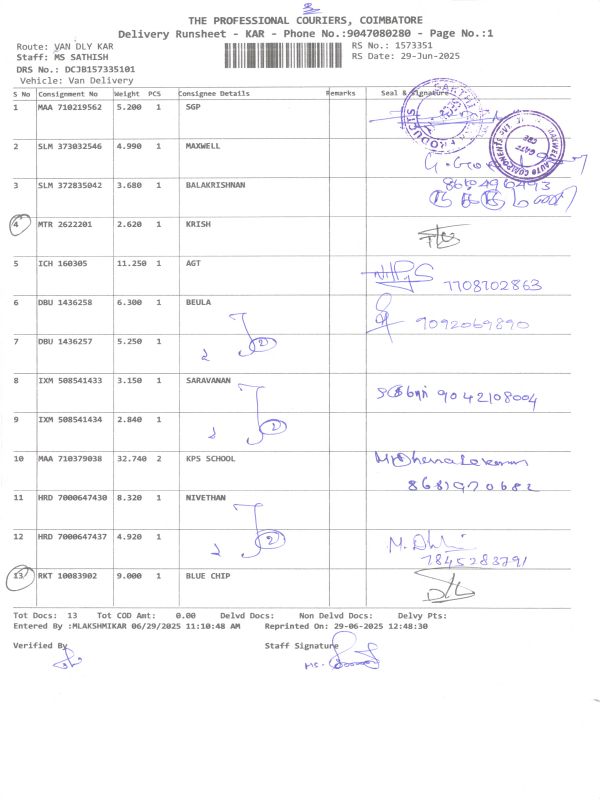 THE PROFESSIONAL COURIERS, COIMBATORE
Delivery Runsheet - KAR - Phone No.:9047080280 - Page No.:1
Route: VAN DLY KAR RS No.: 1573351
Staff: MS SATHISH RS Date: 29-Jun-2025
DRS No.: DCJB157335101
Vehicle: Van Delivery
S No Consignment No Weight PCS Consignee Details Remarks Seal & Signature
1 MAA 710219562 5.200 1 SGP
2 SLM 373032546 4.990 1 MAXWELL
3 SLM 372835042 3.680 1 BALAKRISHNAN
4 MTR 2622201 2.620 1 KRISH
5 ICH 160305 11.250 1 AGT 7708702863
6 DBU 1436258 6.300 1 BEULA 9092069890
7 DBU 1436257 5.250 1 2 2
8 IXM 508541433 3.150 1 SARAVANAN 9042108004
9 IXM 508541434 2.840 1 2 2
10 MAA 710379038 32.740 2 KPS SCHOOL
11 HRD 7000647430 8.320 1 NIVETHAN
12 HRD 7000647437 4.920 1 2 2
7845283791
13 RKT 10083902 9.000 1 BLUE CHIP
Tot Docs: 13 Tot COD Amt: 0.00 Delvd Docs: Non Delvd Docs: Delvy Pts:
Entered By :MLAKSHMIKAR 06/29/2025 11:10:48 AM Reprinted On: 29-06-2025 12:48:30
Verified By Staff Signature